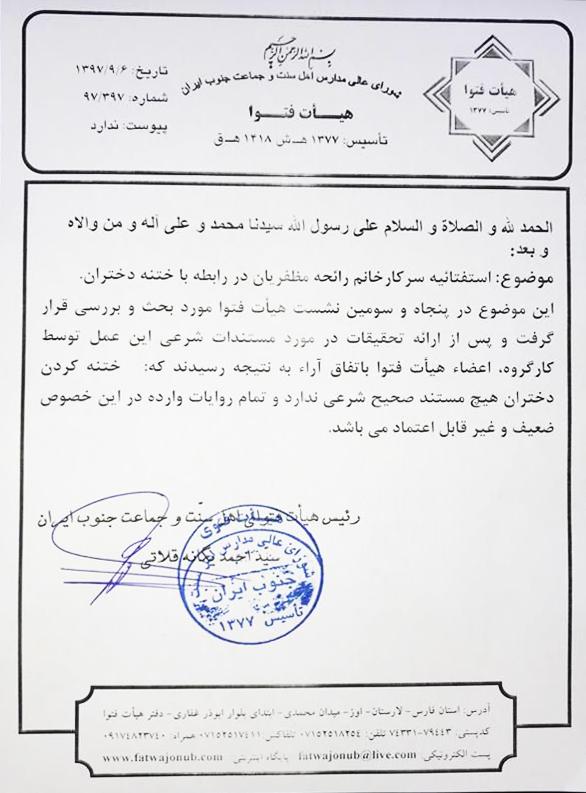 بسم الله الرحمن الرحیم
شورای عالی مدارس اهل سنت و جماعت جنوب ایران
هیأت فتوا
تأسیس: ۱۳۷۷ هـ-ش ۱۴۱۸ هـ-ق
تاریخ: ۱۳۹۷/۹/۶
شماره: ۹۷/۳۹۷
پیوست: ندارد
هیأت فتوا
تأسیس: ۱۳۷۷
الحمد لله و الصلاة و السلام علی رسول الله سیدنا محمد و علی آله و من والاه
و بعد:
موضوع: استفتائیه سرکارخانم رائحه مظفریان در رابطه با ختنه دختران.
این موضوع در پنجاه و سومین نشست هیأت فتوا مورد بحث و بررسی قرار
گرفت و پس از ارائه تحقیقات در مورد مستندات شرعی این عمل توسط
کارگروه، اعضاء هیأت فتوا باتفاق آراء به نتیجه رسیدند که: ختنه کردن
دختران هیچ مستند صحیح شرعی ندارد و تمام روایات وارده در این خصوص
ضعیف و غیر قابل اعتماد می باشد.
رئیس هیأت فتوای اهل سنّت و جماعت جنوب ایران
سید احمد یگانه قلاتی
هیأت فتوی
شورای عالی مدارس
جنوب ایران
تأسیس ۱۳۷۷
آدرس: استان فارس- لارستان- اوز- میدان محمدی- ابتدای بلوار ابوذر غفاری- دفتر هیأت فتوا
کدپستی: ۷۹۴۴۳-۷۴۳۳۱ تلفن: ۰۷۱۵۲۵۱۸۲۵۴ تلفاکس: ۰۷۱۵۲۵۱۷۴۱۱ همراه: ۰۹۱۷۴۸۲۳۷۴۰
پست الکترونیکی: fatwajonub@live.com پایگاه اینترنتی: www.fatwajonub.com